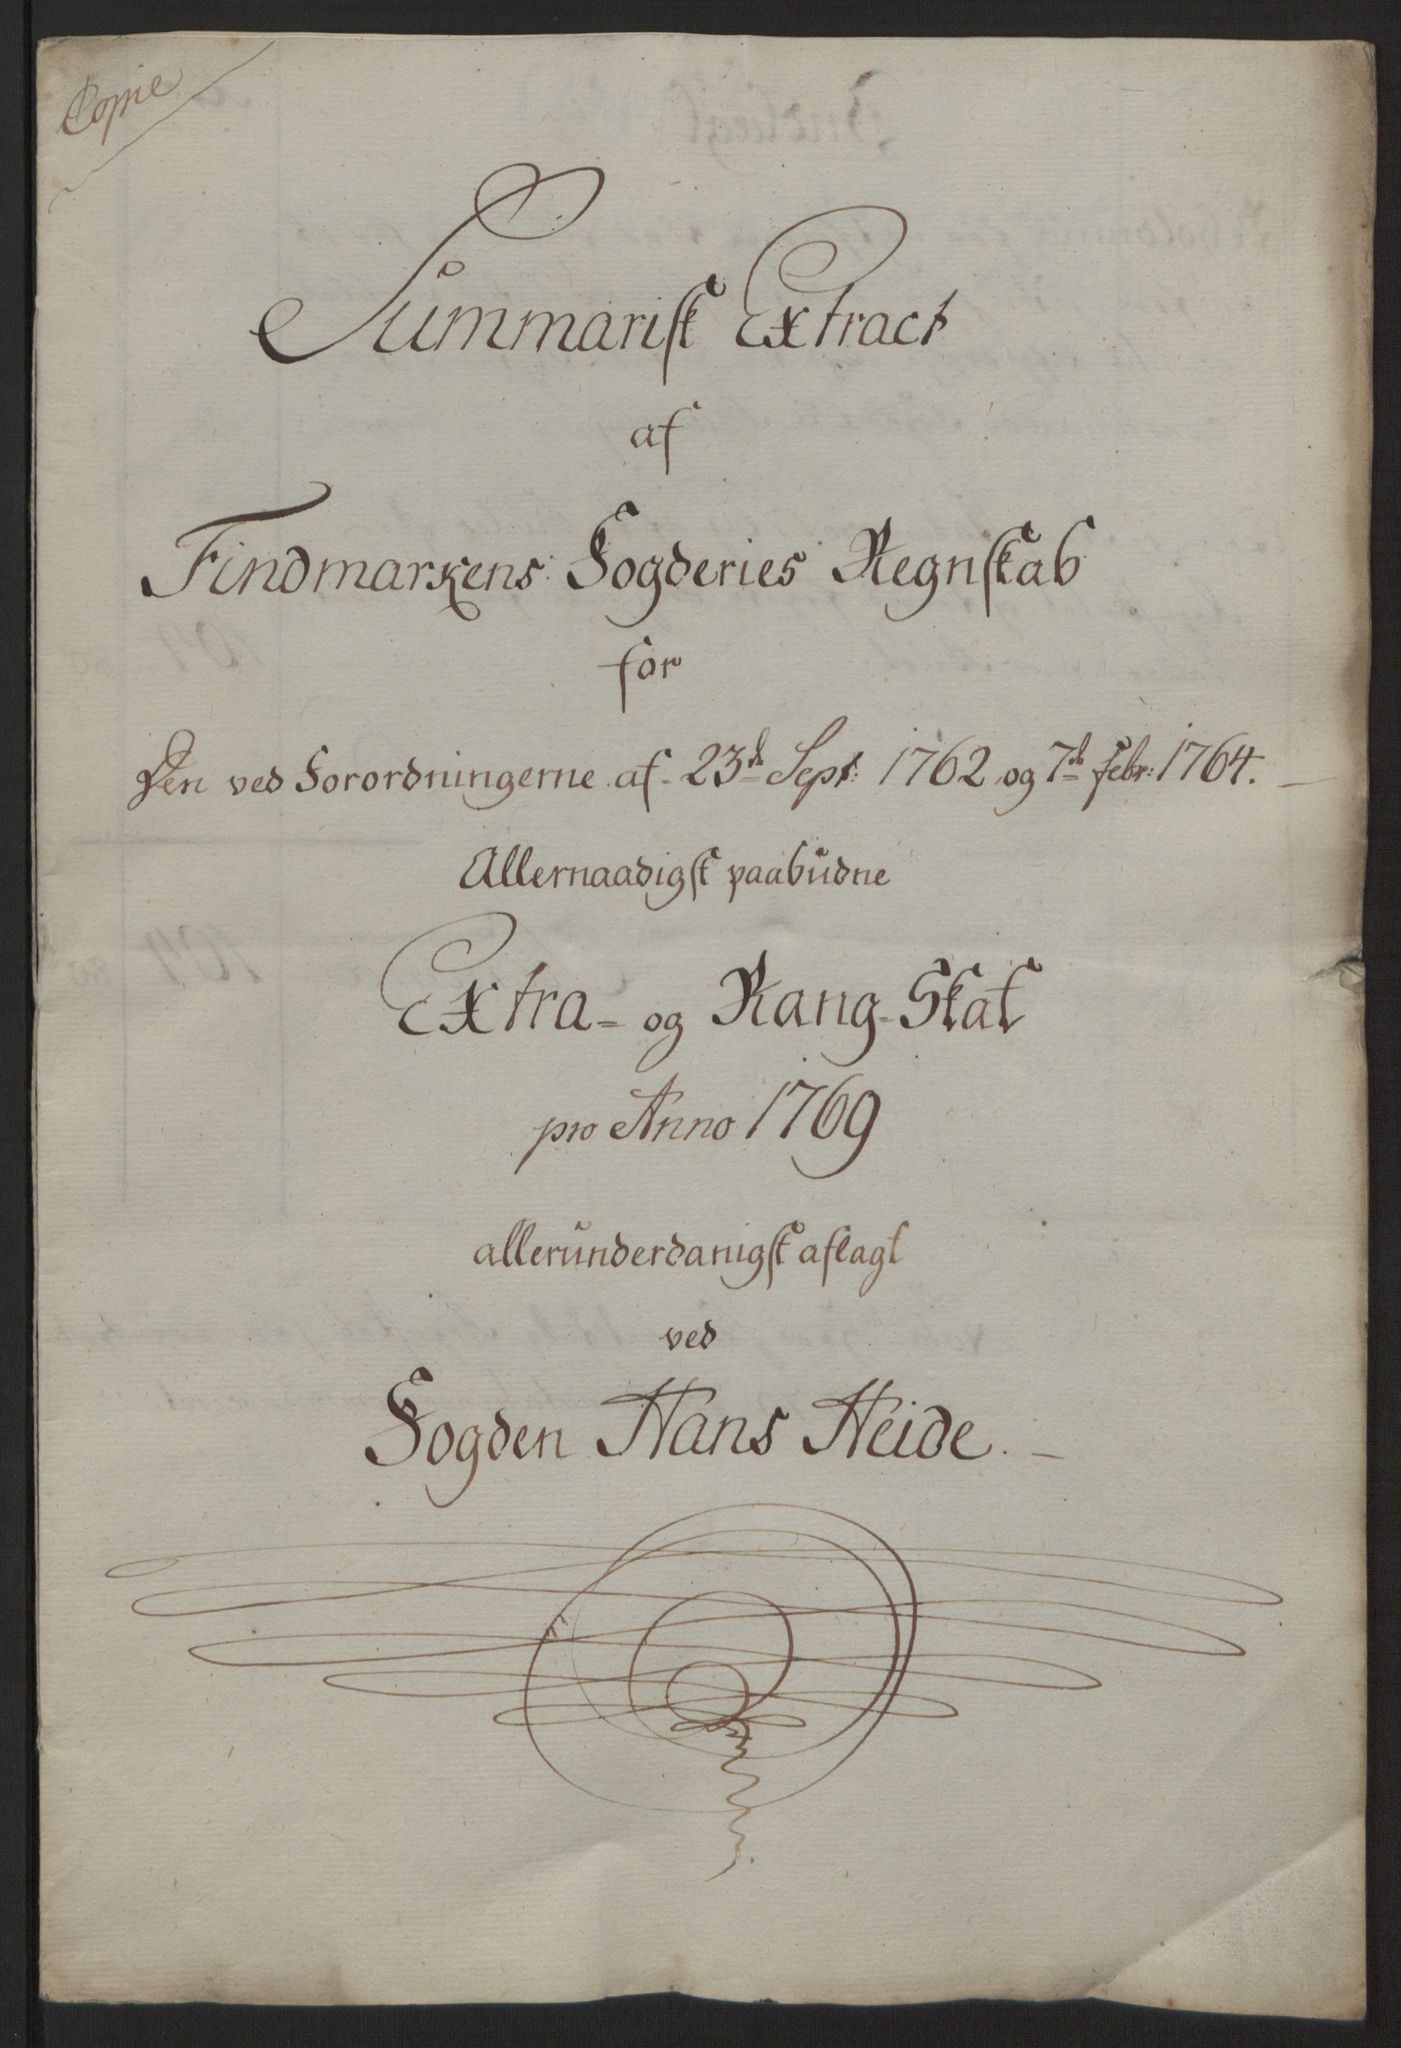 Copie
Summarisk Extract
af
Findmarkens Fogderies Regnskab
for
Den ved Forordningerne af 23d Sept: 1762 og 7d Febr: 1764.
Allernaadigst paabudne
Extra- og Rang-Skat
pro Anno 1769
allerunderdanigst aflagt
ved
Fogden Hans Heide.